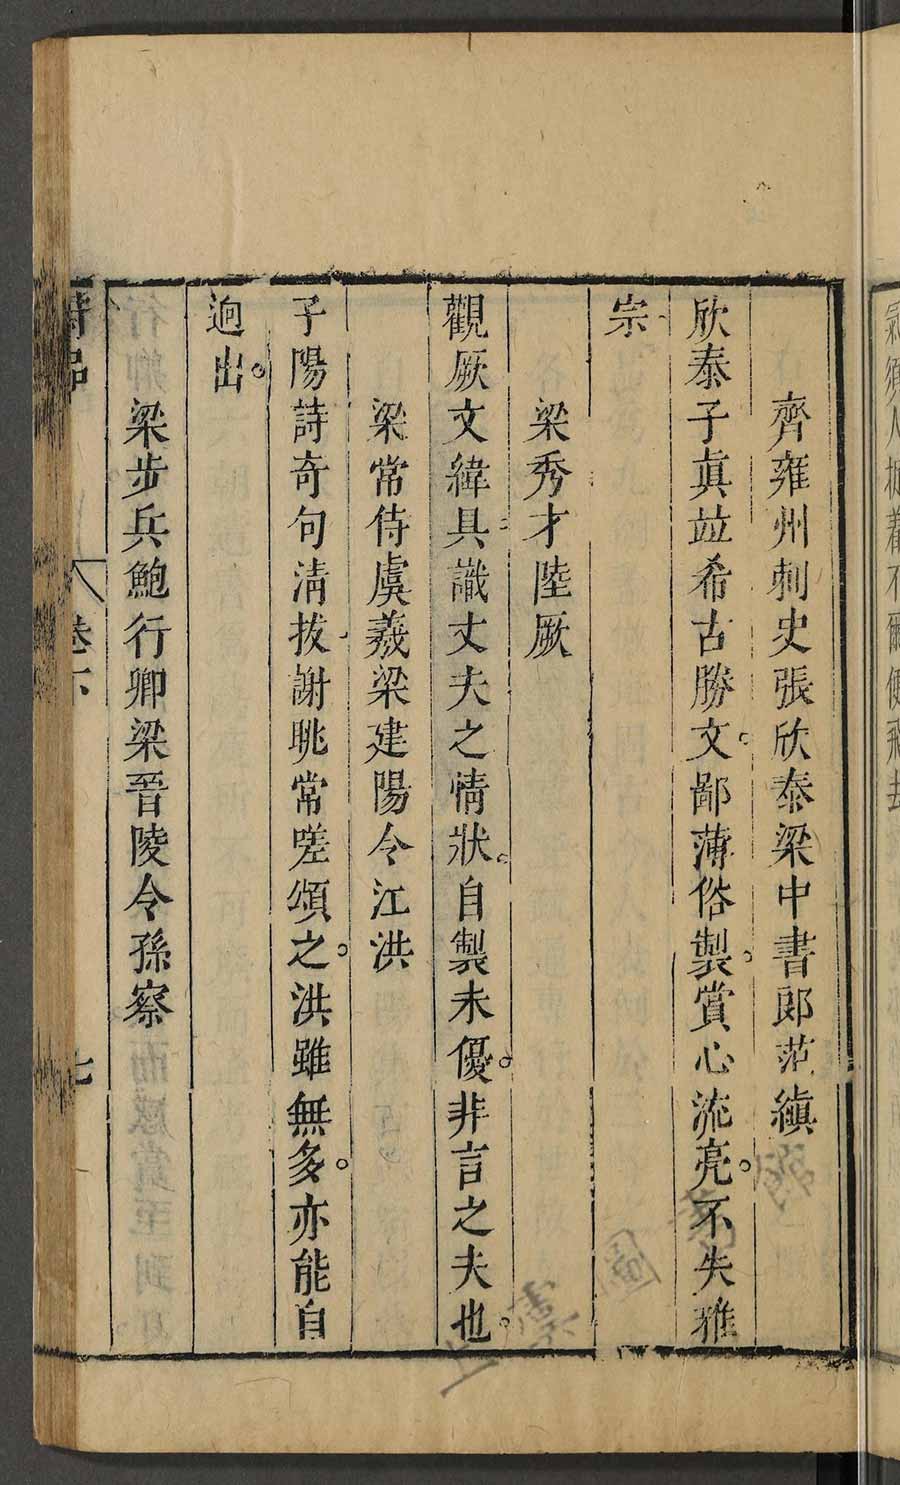 齊雍州刺史張欣泰梁中書郎范縝
欣泰子眞竝希古勝文。鄙薄俗製。賞心流亮。不失雅
宗
梁秀才陸厥
觀厥文緯具識丈夫之情狀。自製未優。非言之夫也。
梁常侍虞羲梁建陽令江洪
子陽詩奇句淸拔謝眺常嗟頌之。洪雖無多。亦能自
迥出。
梁步兵鮑行卿梁晉陵令孫察
詩品
卷下
七